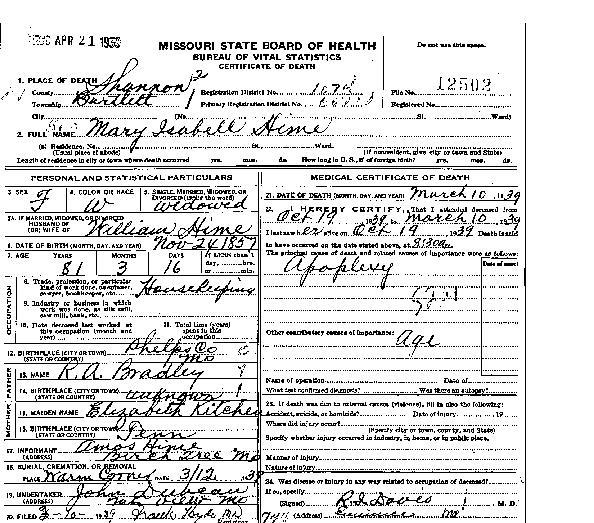 REC APR 21 1939
MISSOURI STATE BOARD OF HEALTH
BUREAU OF VITAL STATISTICS
CERTIFICATE OF DEATH
Do not use this space.
1. PLACE OF DEATH
County Shannon
Registration District No.
File No. 12502
Township Bartlett
Primary Registration District No.
Registered No.
City (No. St. Ward)
2. FULL NAME Mary Isabill Hime
(a) Residence, No. St. Ward.
(Usual place of abode) (If nonresident, give city or town and State)
Length of residence in city or town where death occurred yrs. mos. ds. How long in U.S., if of foreign birth? yrs. mos. ds.
PERSONAL AND STATISTICAL PARTICULARS
3. SEX F
4. COLOR OR RACE W
5. SINGLE, MARRIED, WIDOWED, OR DIVORCED (write the word) widowed
5A. IF MARRIED, WIDOWED, OR DIVORCED
HUSBAND OF
(OR) WIFE OF William Hime
6. DATE OF BIRTH (MONTH, DAY, AND YEAR) Nov 24 1857
7. AGE YEARS MONTHS DAYS If LESS than 1 day, hrs. or min.
81 3 16
OCCUPATION
8. Trade, profession, or particular kind of work done, as spinner, sawyer, bookkeeper, etc. Housekeeping
9. Industry or business in which work was done, as silk mill, saw mill, bank, etc.
10. Date deceased last worked at this occupation (month and year)
11. Total time (years) spent in this occupation
12. BIRTHPLACE (CITY OR TOWN) Phelps Co
(STATE OR COUNTRY) Mo
FATHER
13. NAME R. A. Bradley
14. BIRTHPLACE (CITY OR TOWN) unknown
(STATE OR COUNTRY)
MOTHER
15. MAIDEN NAME Elizabeth Kitchen
16. BIRTHPLACE (CITY OR TOWN)
(STATE OR COUNTRY) Tenn
17. INFORMANT Amos Hime
(ADDRESS) Birch Tree Mo
18. BURIAL, CREMATION, OR REMOVAL
PLACE DATE 3/12 39
19. UNDERTAKER John
(ADDRESS) Mo
20. FILED 1939
MEDICAL CERTIFICATE OF DEATH
21. DATE OF DEATH (MONTH, DAY, AND YEAR) March 10 1939
22. I HEREBY CERTIFY, That I attended deceased from
Oct 19 1939, to March 10 1939
I last saw her alive on Oct 19 1939 Death is said
to have occurred on the date stated above, at 8:30 a m.
The principal cause of death and related causes of importance were as follows:
Date of onset
Apoplexy
Other contributory causes of importance:
Age
Name of operation Date of
What test confirmed diagnosis? Was there an autopsy?
23. If death was due to external causes (violence), fill in also the following:
Accident, suicide, or homicide? Date of injury 19
Where did injury occur?
(Specify city or town, county, and State)
Specify whether injury occurred in industry, in home, or in public place.
Manner of injury
Nature of injury
24. Was disease or injury in any way related to occupation of deceased?
If so, specify
(Signed) M. D.
(Address) Mo